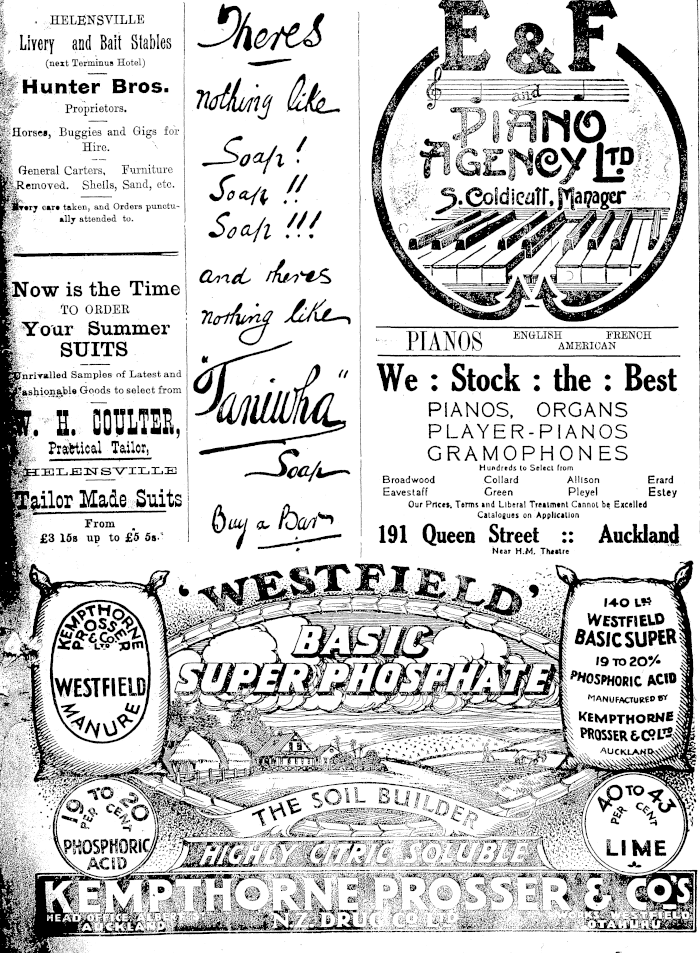 HELENSVILLE
Livery and Bait Stables
(next Terminus Hotel)
Hunter Bros.
Proprietors.
Horses, Buggies and Gigs for
Hire.
General Carters, Furniture
Removed. Shells, Sand, etc.
Every care taken, and Orders punctu-
ally attended to.
Now is the Time
TO ORDER
Your Summer
SUITS
Unrivalled Samples of Latest and
Fashionable Goods to select from
W. H. COULTER,
Practical Tailor,
HELENSVILLE
Tailor Made Suits
From
£3 15s up to £5 5s.
Theres
nothing like
Soap!
Soap!!
Soap!!!
and theres
nothing like
"Taniwha"
Soap
Buy a Bar
E & F
and
PIANO
AGENCY LTD
S. Coldicutt, Manager
PIANOS ENGLISH FRENCH
AMERICAN
We : Stock : the : Best
PIANOS, ORGANS
PLAYER-PIANOS
GRAMOPHONES
Hundreds to Select from
Broadwood Collard Allison Erard
Eavestaff Green Pleyel Estey
Our Prices, Terms and Liberal Treatment Cannot be Excelled
Catalogues on Application
191 Queen Street :: Auckland
Near H.M. Theatre
'WESTFIELD'
BASIC
SUPER PHOSPHATE
KEMPTHORNE
PROSSER
& CO LTD
WESTFIELD
MANURE
140 LBS
WESTFIELD
BASIC SUPER
19 TO 20%
PHOSPHORIC ACID
MANUFACTURED BY
KEMPTHORNE
PROSSER & CO LTD
AUCKLAND
19 TO 20
PER CENT
PHOSPHORIC
ACID
THE SOIL BUILDER
HIGHLY CITRIC SOLUBLE
40 TO 43
PER CENT
LIME
KEMPTHORNE PROSSER & CO'S
HEAD OFFICE, ALBERT S'
AUCKLAND
N.Z. DRUG CO LTD
WORKS. WESTFIELD
OTAHUHU